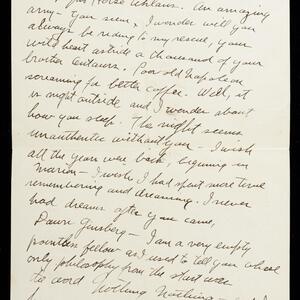 Horse Whalans. An amazing
army - your seen & I wonder will you
always be riding to my rescue, your
wild heart astride a thousand of your
brother Centaurs. Poor old Napoleon
screaming for better coffee. Well, it
is night outside and I wonder about
how you sleep. The night seems
unauthentic without you - I wish
all the years were back, beginning in
Marion - I wish I had spent more time
remembering and dreaming. I never
had dreams after you came,
Dawn Ginsberg - I am a very empty
pointless fellow as I used to tell you whose
only philosophy from the start was
the word Nothing Nothing -